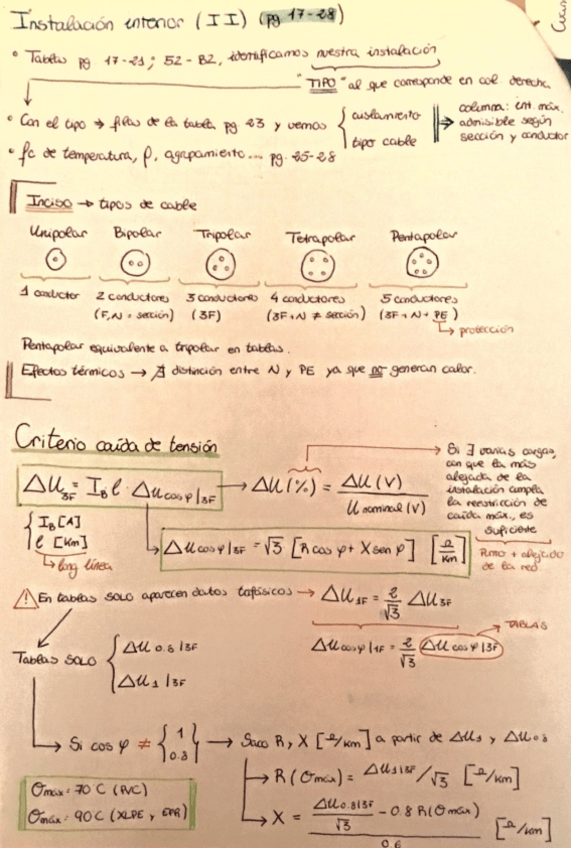 Instalación interior (II) (pg 17-28)
• Tablas pg 17-21; 52-B2, identificamos nuestra instalación
"TIPO" al que corresponde en col. derecha
• Con el tipo → filas de la tabla pg 23 y vemos { aislamiento
tipo cable
columna: int. máx. admisible según sección y conductor
• fc de temperatura, ρ, agrupamiento... pg. 25-28
Inciso → tipos de cable
Unipolar Bipolar Tripolar Tetrapolar Pentapolar
1 conductor 2 conductores 3 conductores 4 conductores 5 conductores
(F,N = sección) (3F) (3F+N ≠ sección) (3F+N+PE)
protección
Pentapolar equivalente a tripolar en tablas.
Efectos térmicos → ∄ distinción entre N y PE ya que no generan calor.
Criterio caída de tensión
ΔU3F = IB l · ΔU cosφ|3F → ΔU(%) = ΔU(V) / U nominal (V)
Si ∃ varias cargas,
con que la más
alejada de la
instalación cumpla
la restricción de
caída máx., es
suficiente
Punto + alejado
de la red
{ IB [A]
l [Km]
long línea
ΔU cosφ|3F = √3 [R cosφ + X senφ] [Ω/Km]
⚠ En tablas SOLO aparecen datos trifásicos → ΔU1F = 2/√3 ΔU3F
ΔU cosφ|1F = 2/√3 ΔU cosφ|3F
TABLAS
Tablas SOLO { ΔU 0.8|3F
ΔU1|3F
Si cosφ ≠ {1
0.8} → Saco R, X [Ω/km] a partir de ΔU1 y ΔU0.8
R(Θmáx) = ΔU1|3F/√3 [Ω/km]
X = (ΔU0.8|3F/√3 - 0.8 R(Θmáx)) / 0.6 [Ω/km]
Θmáx = 70°C (PVC)
Θmáx = 90°C (XLPE y EPR)